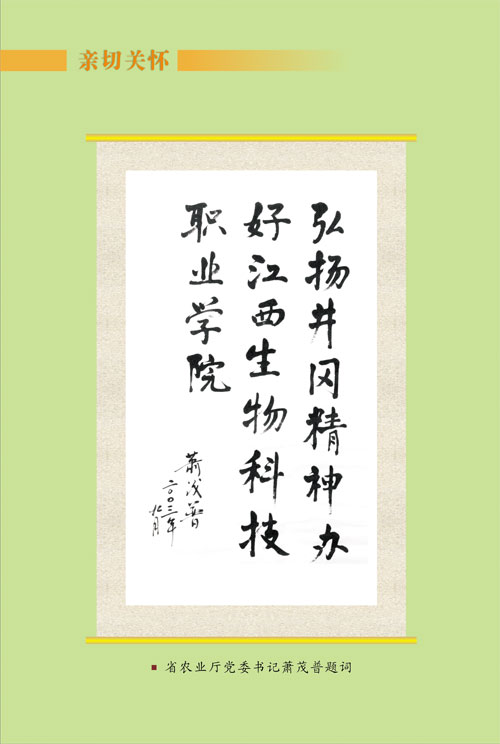 亲切关怀
弘扬井冈精神办
好江西生物科技
职业学院
萧茂普
二〇〇三年
九月
省农业厅党委书记萧茂普题词